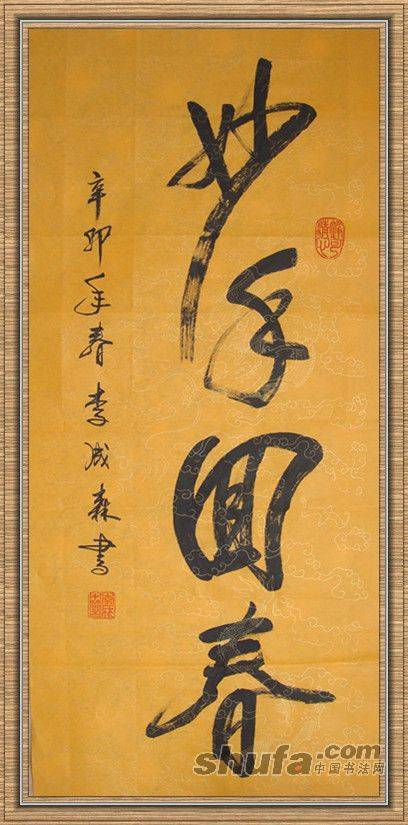 妙手回春
辛卯年春李成森書
shufa.com
中国书法网